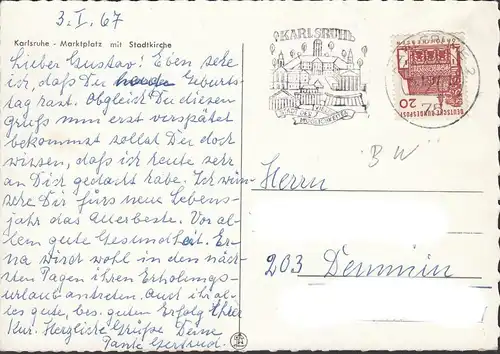 3.I.67
Karlsruhe - Marktplatz mit Stadtkirche
Lieber Gustav! Eben sehe
ich, daß Du heute Geburts-
tag hast. Obgleich Du diesen
Gruß nun erst verspätet
bekommst sollst Du doch
wissen, daß ich heute sehr
an Dich gedacht habe. Ich wün-
sche Dir fürs neue Lebens-
jahr das Allerbeste. Vor al-
lem gute Gesundheit. Er-
na wird wohl in den näch-
sten Tagen ihren Erholungs-
urlaub antreten. Auch ihr al-
les gute, bes. guten Erfolg ihrer
Kur. Herzliche Grüße Deine
Tante Gertrud.
KARLSRUHE
DEUTSCHE BUNDESPOST
20
75
BW
Herrn
203 Demmin